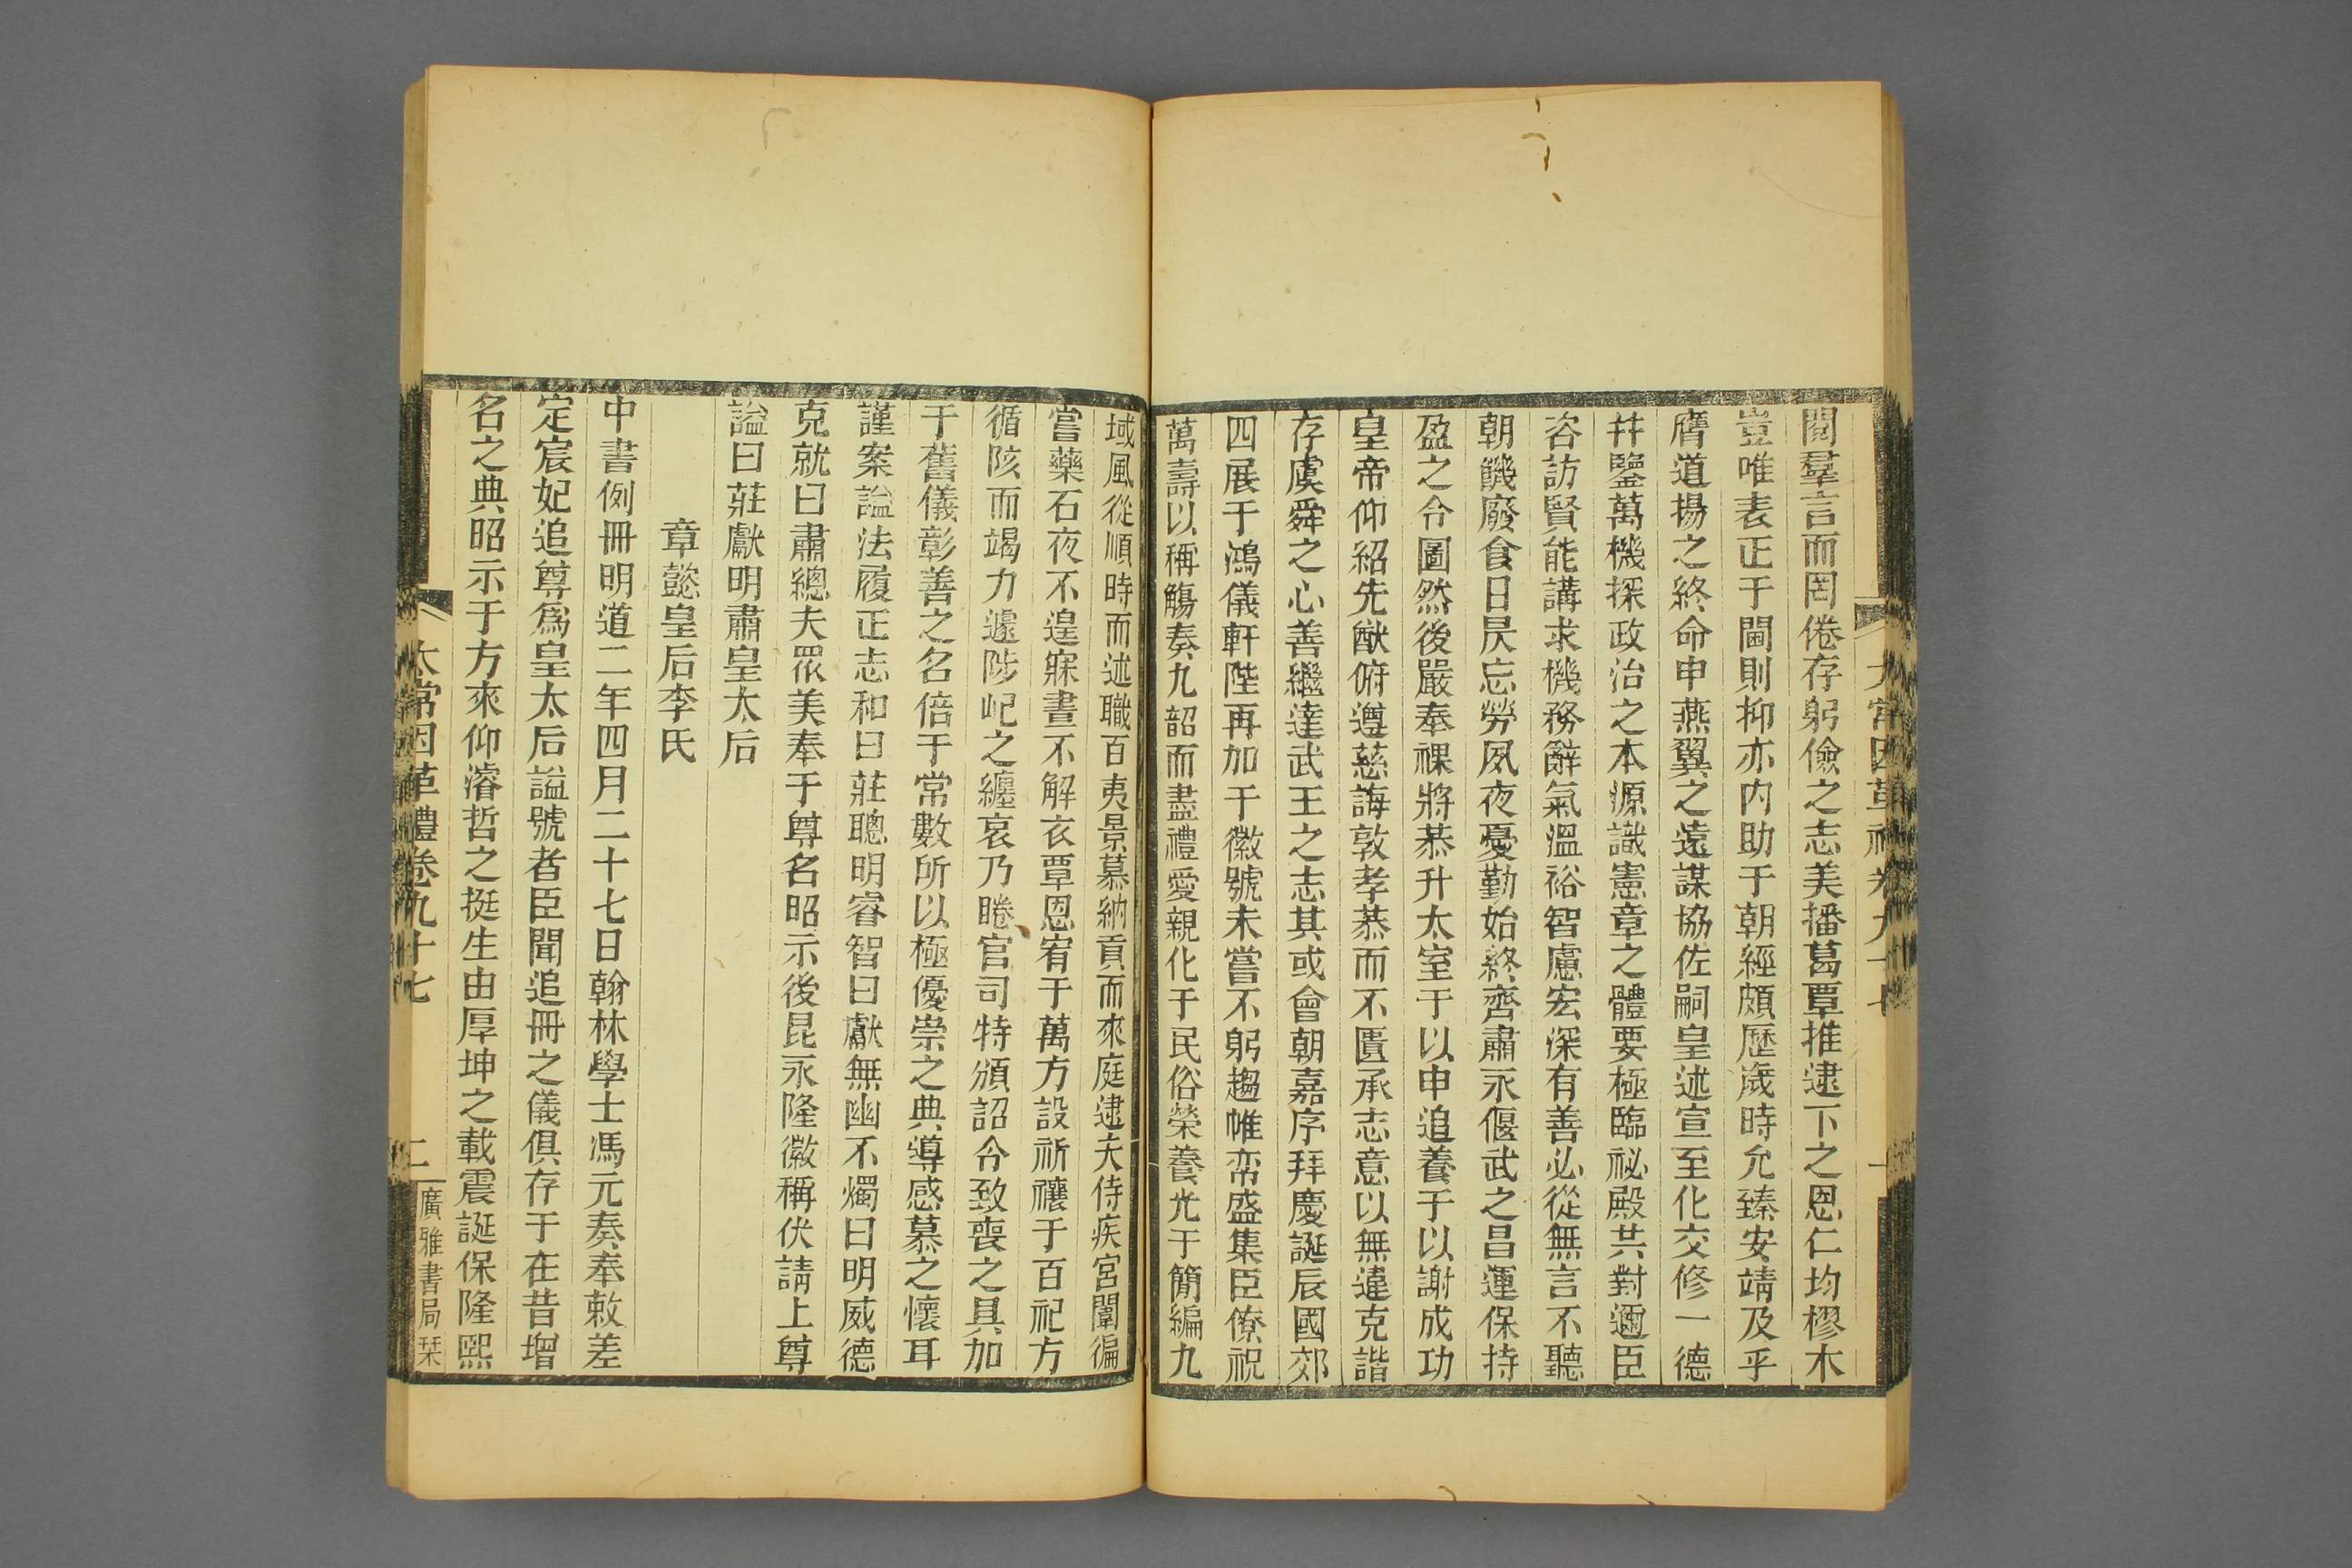 閱羣言而罔倦存躬儉之志美播葛覃推逮下之恩仁均樛木
豈唯表正于閫則抑亦内助于朝經頗歷歲時允臻安靖及乎
膺道揚之終命申燕翼之遠謀協佐嗣皇述宣至化交修一德
幷鑒萬機探政治之本源識憲章之體要極臨祕殿共對邇臣
咨訪賢能講求機務辭氣溫裕智慮宏深有善必從無言不聽
朝饑廢食日昃忘勞夙夜憂勤始終齊肅永偃武之昌運保持
盈之令圖然後嚴奉祼將恭升太室于以申追養于以謝成功
皇帝仰紹先猷俯遵慈誨敦孝恭而不匱承志意以無違克諧
存虞舜之心善繼達武王之志其或會朝嘉序拜慶誕辰國郊
四展于鴻儀軒陛再加于徽號未嘗不躬趨帷帟盛集臣僚祝
萬壽以稱觴奏九韶而盡禮愛親化于民俗榮養光于簡編九
域風從順時而述職百夷景慕納貢而來庭逮夫侍疾宮闈徧
嘗藥石夜不遑寐晝不解衣覃恩宥于萬方設祈禳于百祀方
循陔而竭力遽陟屺之纏哀乃睠官司特頒詔令致喪之具加
于舊儀彰善之名倍于常數所以極優崇之典導感慕之懷耳
謹案謚法履正志和曰莊聰明睿智曰獻無幽不燭曰明威德
克就曰肅總夫眾美奉于尊名昭示後昆永隆徽稱伏請上尊
謚曰莊獻明肅皇太后
章懿皇后李氏
中書例冊明道二年四月二十七日翰林學士馮元奏奉敕差
定宸妃追尊爲皇太后謚號者臣聞追冊之儀俱存于在昔增
名之典昭示于方來仰濬哲之挺生由厚坤之載震誕保隆熙
太常因革禮卷九十七
二
廣雅書局栞